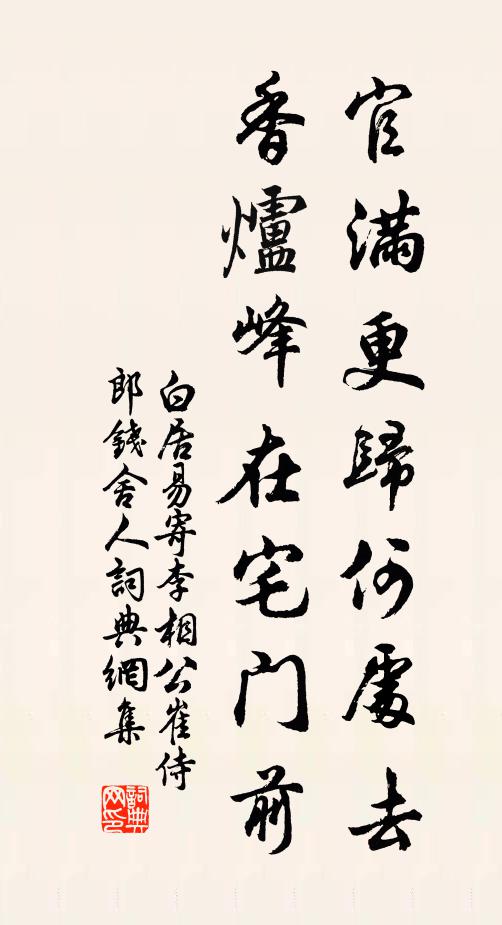 官滿更歸何處去
香爐峰在宅門前
白居易寄李相公崔侍
郎錢舍人詞典網集
詞典
网印